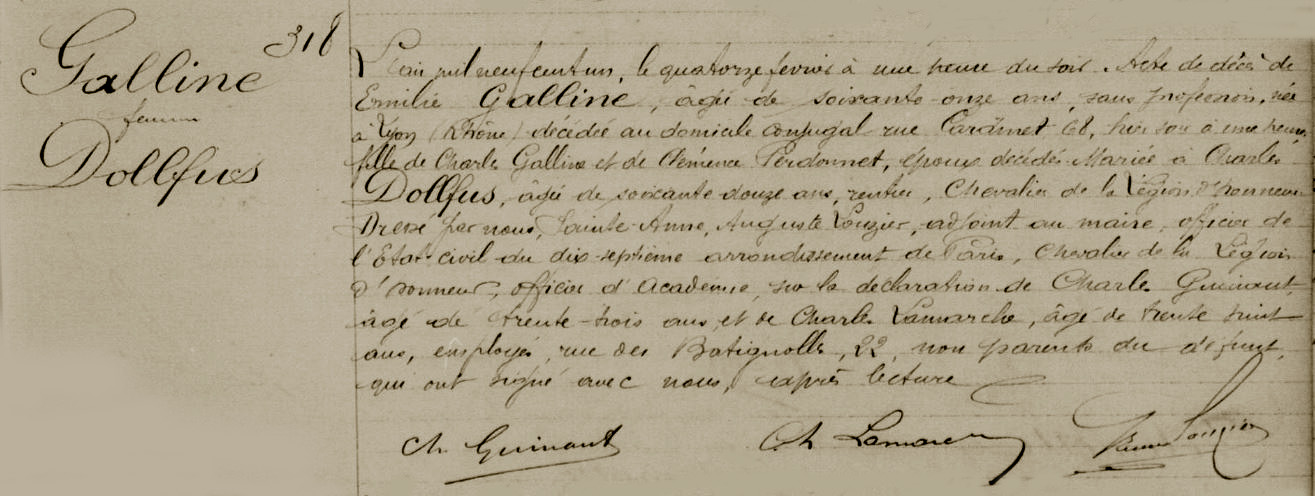 318
Galline
femme
Dollfus
L'an mil neuf cent un, le quatorze février à une heure du soir. Acte de décès de
Emilie Galline, âgée de soixante onze ans, sans profession, née
à Lyon (Rhône) décédée au domicile conjugal rue Cardinet 68, hier soir à une heure,
fille de Charles Galline et de Clémence Perdonnet, époux décédés. Mariée à Charles
Dollfus, âgé de soixante-douze ans, rentier, Chevalier de la Légion d'honneur
Dressé par nous, Sainte-Anne, Auguste Louzier, adjoint au maire, officier de
l'Etat-civil du dix-septième arrondissement de Paris, Chevalier de la Légion
d'honneur, officier d'Académie, sur la déclaration de Charles Guinant,
âgé de trente-trois ans, et de Charles Lamarche, âgé de trente huit
ans, employés, rue des Batignolles, 22, non parents du défunt,
qui ont signé avec nous, après lecture
Ch. Guinant Ch Lamarche